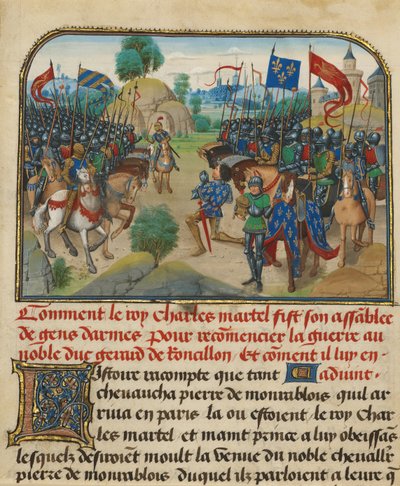 Comment le roy charles martel fist son assamblee
de gens darmes pour recomencier la guerre au
noble duc gerard de Ronssillon Et coment il luy en
Istoire racompte que tant aduint
cheuaucha pierre de monrablois quil ar
riua en paris la ou estoient le roy char
les martel et maint prince a luy obeissās
lesquelz desiroiēt moult la venue du noble cheuallr̄
pierre de monrablois duquel ilz parloient a leure q̄